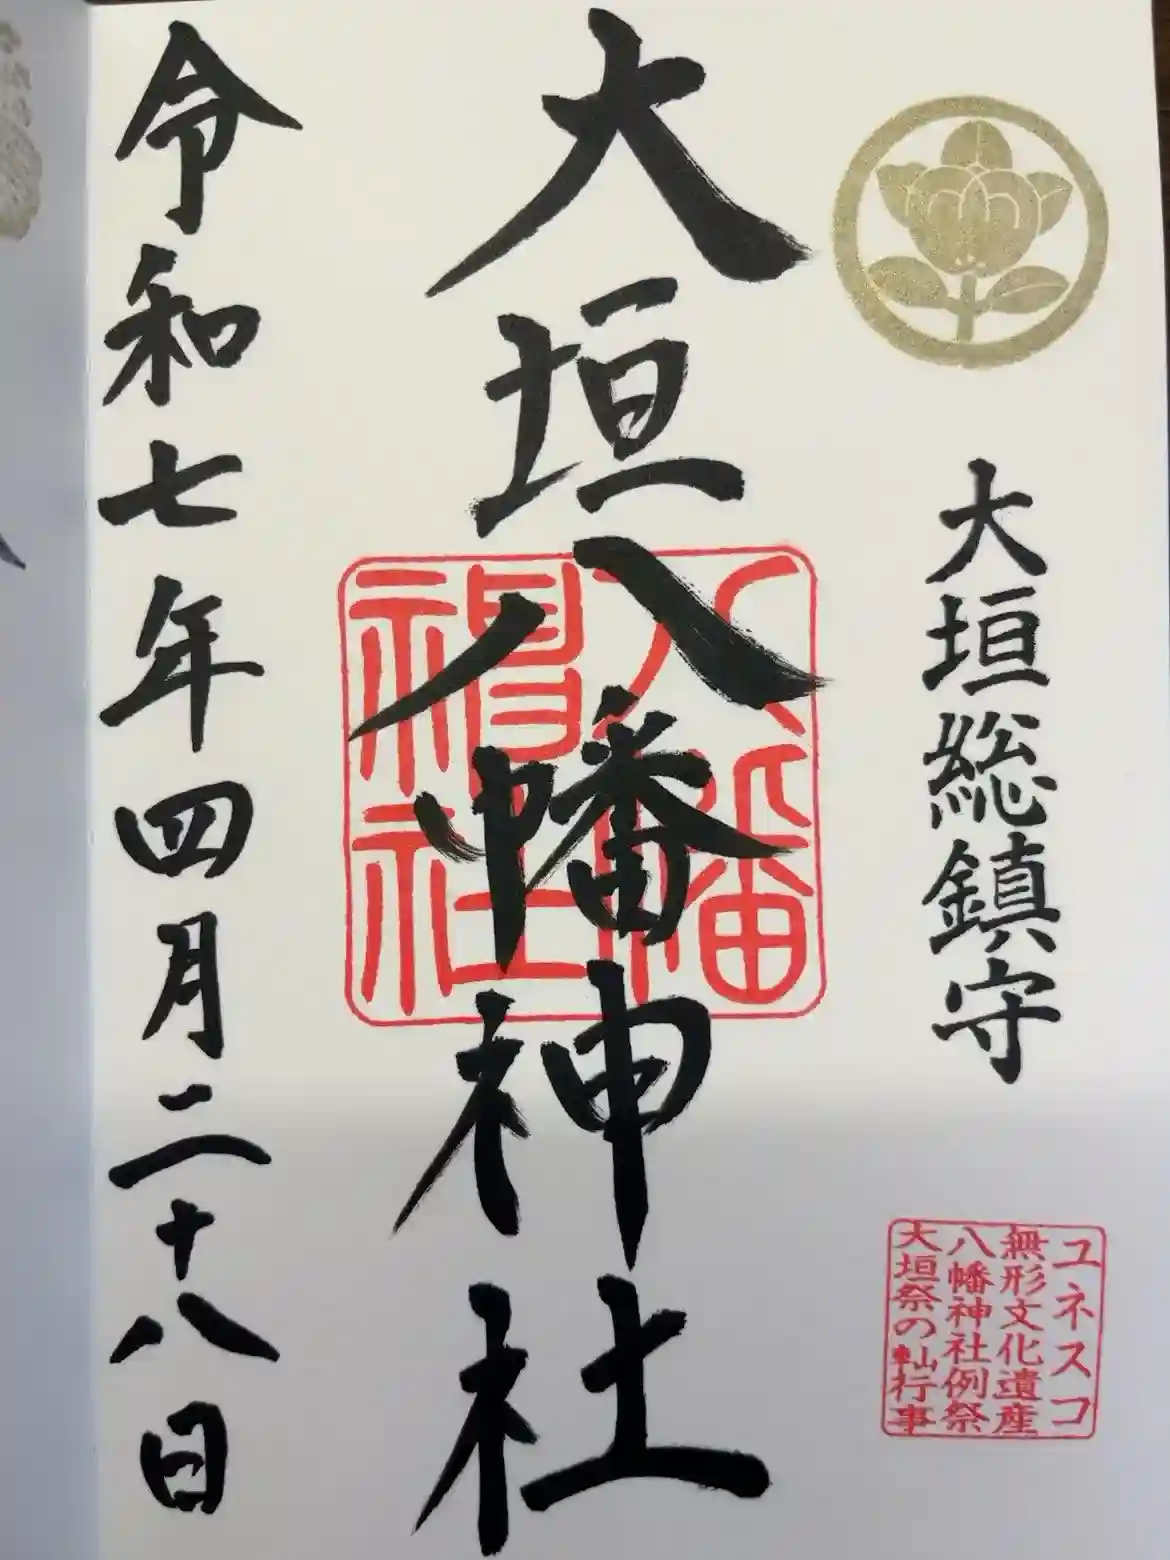 大垣総鎮守
ユネスコ
無形文化遺産
八幡神社例祭
大垣祭の軕行事
大垣八幡神社
八幡
神社
令和七年四月二十八日